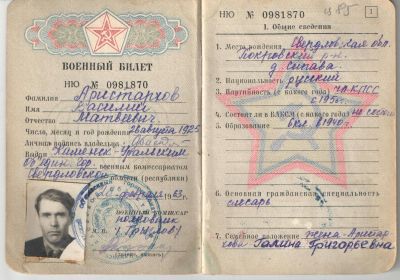 ВОЕННЫЙ БИЛЕТ
НЮ № 0981870
Фамилия Аристархов
Имя Василий
Отчество Матвеевич
Число, месяц и год рождения 28 августа 1925
Личная подпись владельца
Выдан Каменск-Уральским
объедин. гор. военным комиссариатом
Свердловской области
1963 г.
ВОЕННЫЙ КОМИССАР
полковник
М. П.
НЮ № 0981870
1
I. Общие сведения
1. Место рождения Свердловская обл.
Покровский р-н
д.
2. Национальность русский
3. Партийность (с какого года) чл. КПСС
с 195
4. Состоит ли в ВЛКСМ (с какого года) не состоит
5. Образование 6 кл. в 1940 г.
6. Основная гражданская специальность
слесарь
7. Семейное положение жена - Аристар
хова Галина Григорьевна